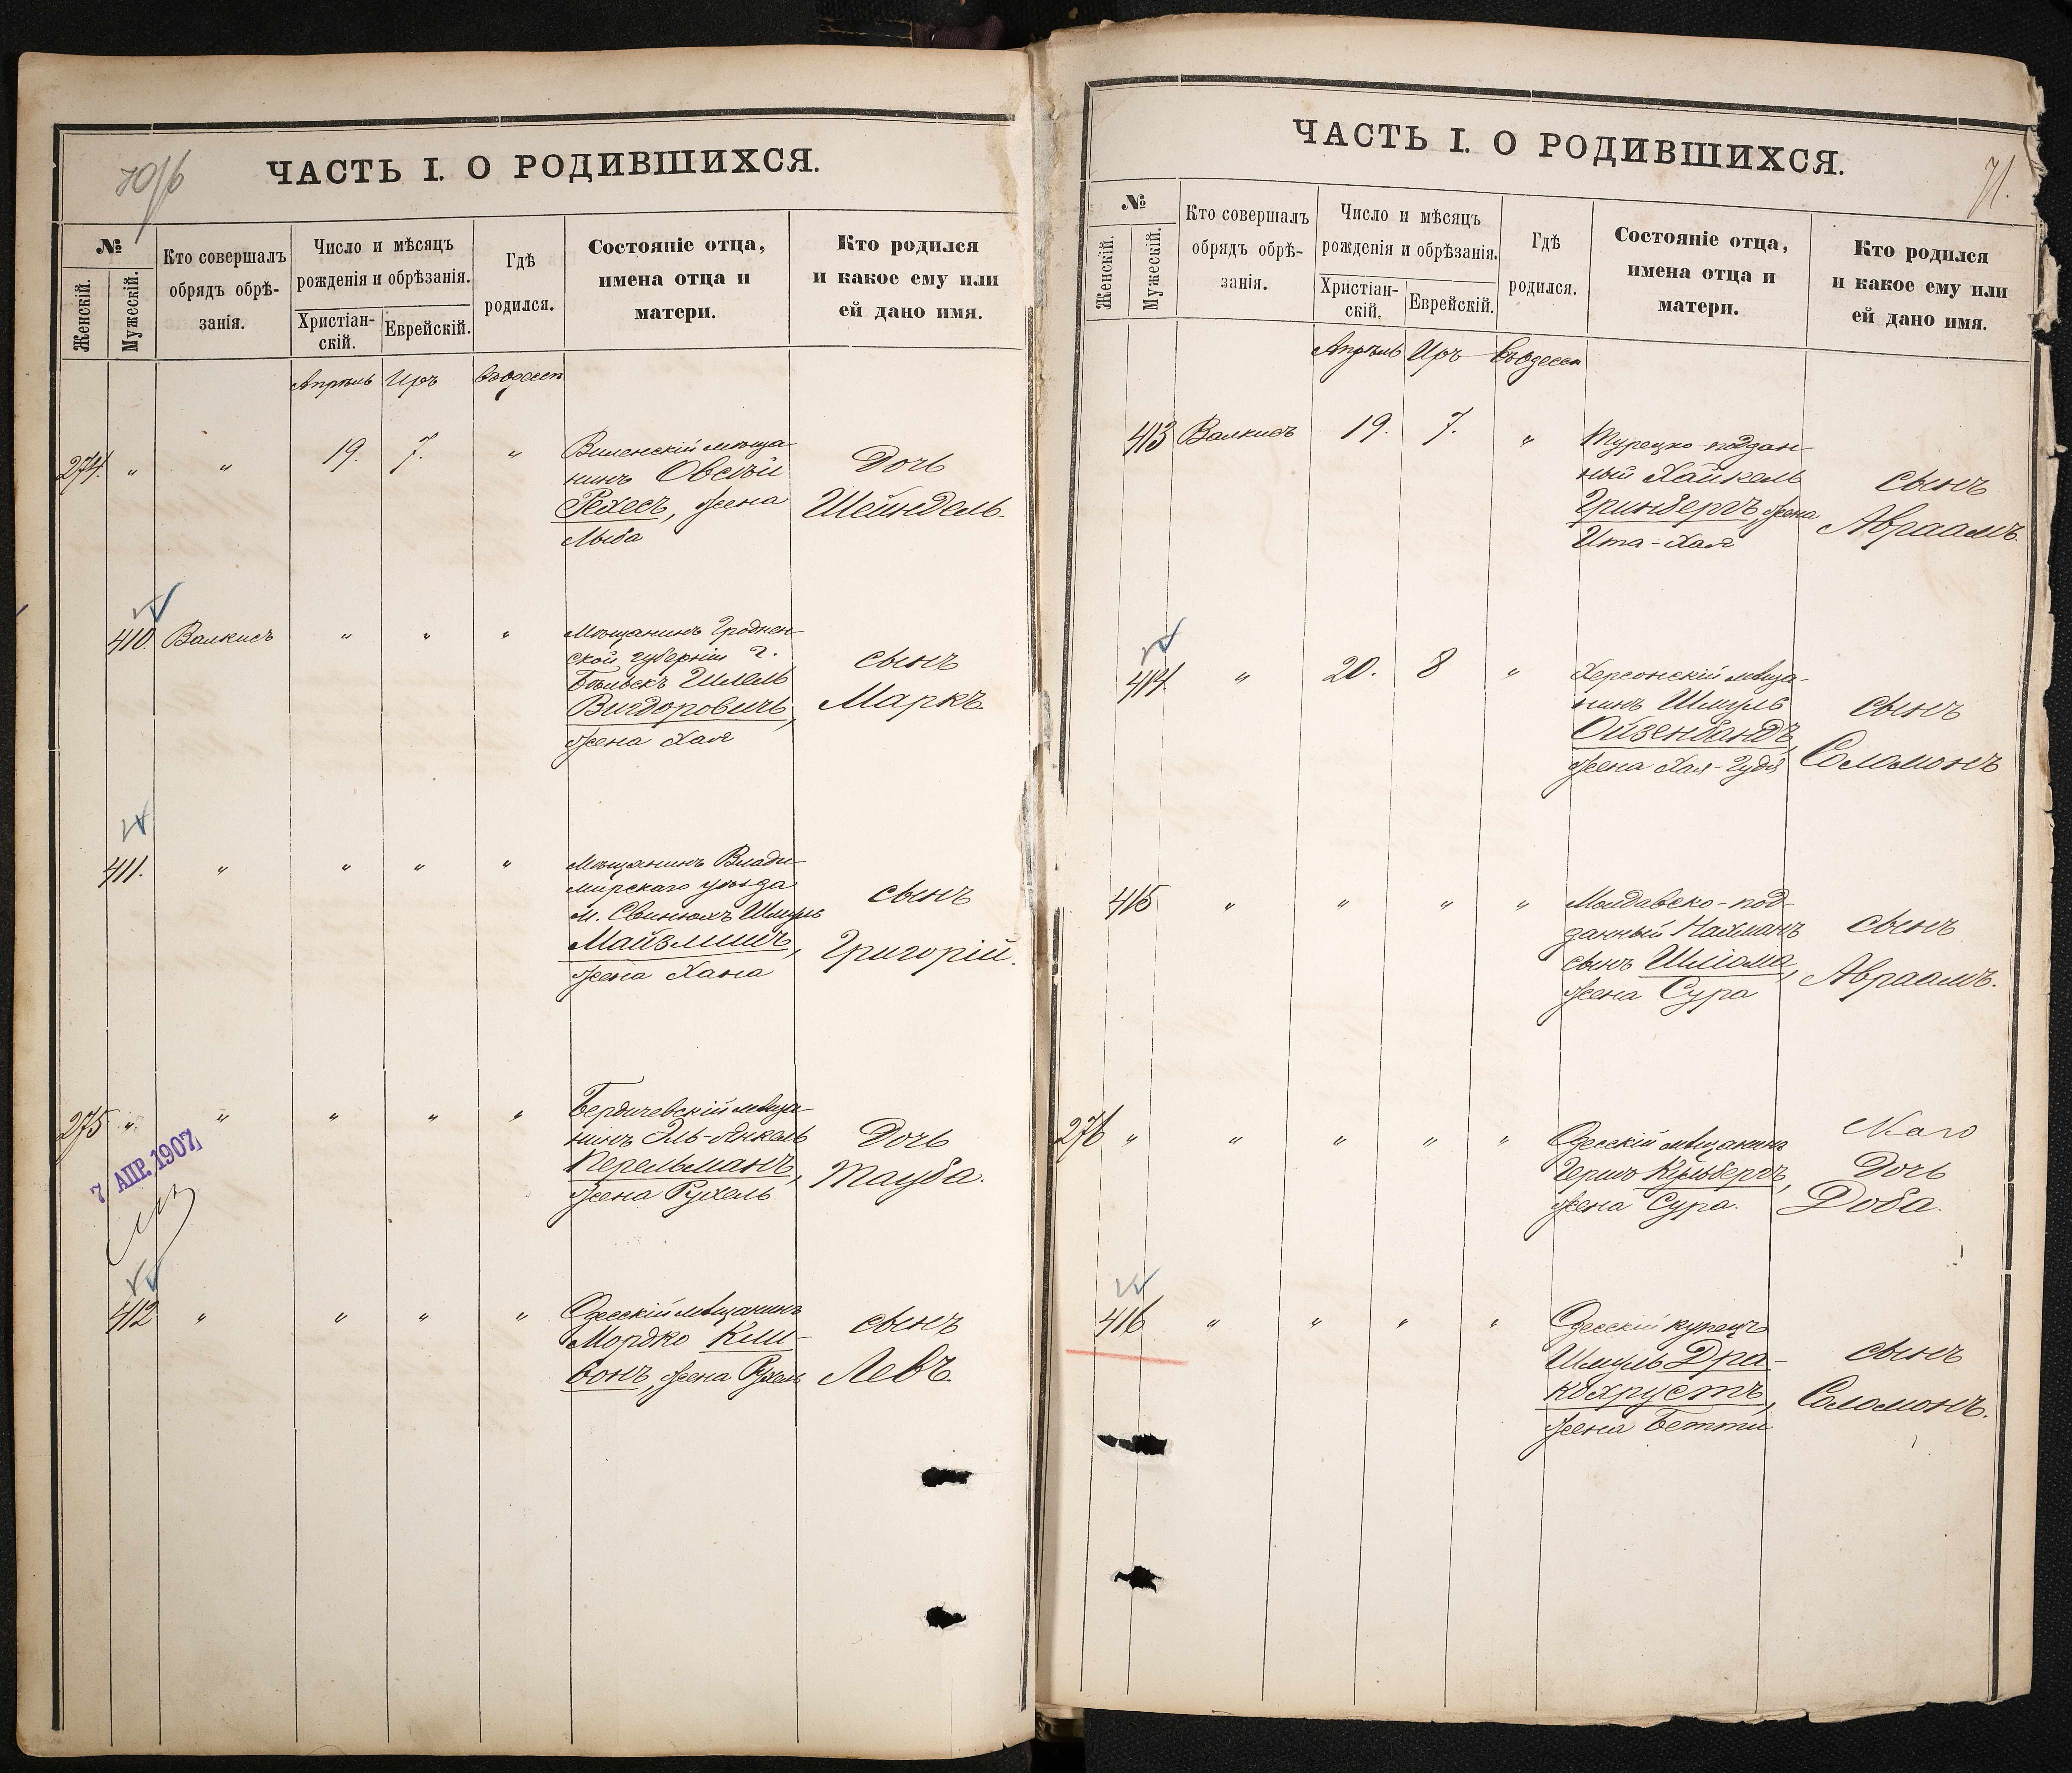 70/б
ЧАСТЬ I. О РОДИВШИХСЯ.
№
Женскій.
Мужескій.
Кто совершалъ
обрядъ обрѣ-
занія.
Число и мѣсяцъ
рожденія и обрѣзанія.
Христіан-
скій.
Еврейскій.
Гдѣ
родился.
Состояніе отца,
имена отца и
матери.
Кто родился
и какое ему или
ей дано имя.
Апрѣль Иръ въ Одессѣ
274. " " 19. 7. "
Виленскій мѣща-
нинъ Овсѣй
Рехесъ, жена
Лыба
Дочь
Шейндель.
410. Валкисъ " " "
Мѣщанинъ Гроднен-
ской губерніи г.
Бѣльскъ Шлель
Вигдоровичъ,
жена Хая
сынъ
Маркъ.
411. " " " "
Мѣщанинъ Влади-
мирскаго уѣзда
м. Свинюхъ Шмуль
Майзлишъ,
жена Хана
сынъ
Григорій.
275 " " " " "
Бердичевскій мѣща-
нинъ Эль-Янкель
Перельманъ,
жена Рухель
Дочь
Тауба.
7 АПР. 1907
412 " " " "
Одесскій мѣщанинъ
Мордко Кли-
бонъ, жена Рухель
сынъ
Левъ.
ЧАСТЬ I. О РОДИВШИХСЯ.
71.
№
Женскій.
Мужескій.
Кто совершалъ
обрядъ обрѣ-
занія.
Число и мѣсяцъ
рожденія и обрѣзанія.
Христіан-
скій.
Еврейскій.
Гдѣ
родился.
Состояніе отца,
имена отца и
матери.
Кто родился
и какое ему или
ей дано имя.
Апрѣль Иръ въ Одессѣ
413 Валкисъ 19. 7. "
Турецко-поддан-
ный Хайкель
Гринбергъ жена
Ита-Хая
сынъ
Авраамъ.
414. " 20. 8 "
Херсонскій мѣща-
нинъ Шмуль
Ойзенбандъ,
жена Хая-Гудя
сынъ
Соломонъ
415 " " " "
Молдавско-под-
данный Нахманъ
сынъ Шліома,
жена Сура
сынъ
Авраамъ.
276 " " " " "
Одесскій мѣщанинъ
Гершъ
жена Сура.
Дочь
Доба.
416 " " " "
Одесскій купецъ
Шмуль Дра-
кохрустъ,
жена Бетти
сынъ
Соломонъ.